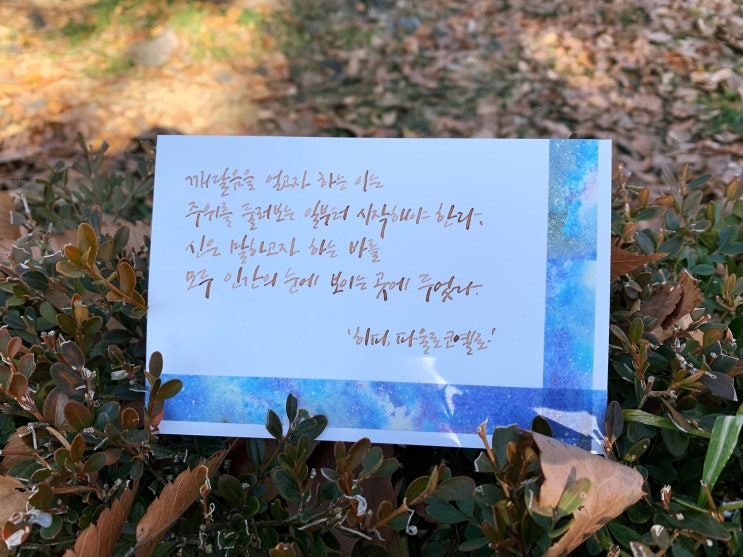 깨달음을 얻고자 하는 이는
주위를 둘러보는 일부터 시작해야 한다.
신은 말하고자 하는 바를
모두 인간의 눈에 보이는 곳에 두었다.
'히피, 파울로코엘료'